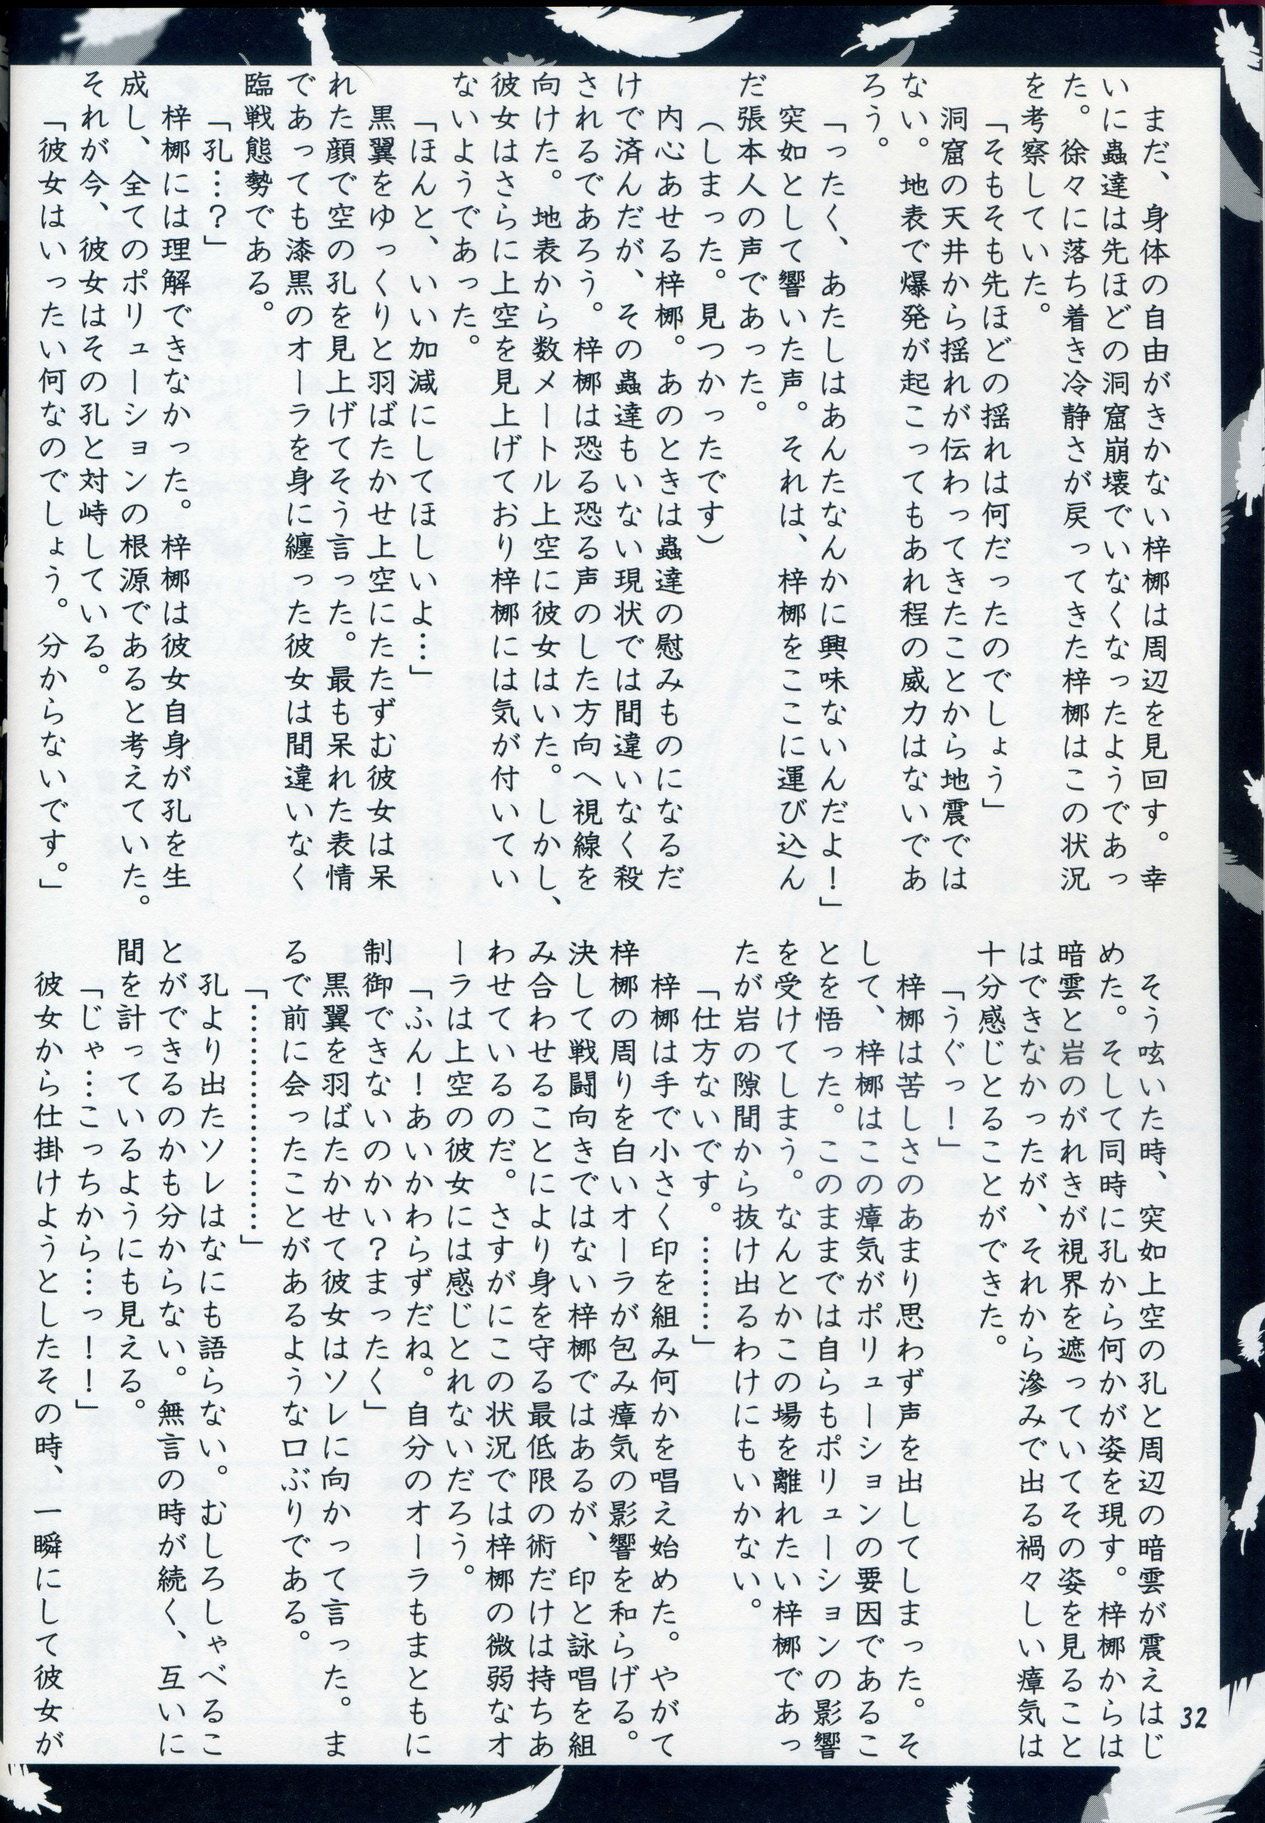 まだ、身体の自由がきかない梓梛は周辺を見回す。幸
いに蟲達は先ほどの洞窟崩壊でいなくなったようであっ
た。徐々に落ち着き冷静さが戻ってきた梓梛はこの状況
を考察していた。
「そもそも先ほどの揺れは何だったのでしょう」
洞窟の天井から揺れが伝わってきたことから地震では
ない。地表で爆発が起こってもあれ程の威力はないであ
ろう。
「ったく、あたしはあんたなんかに興味ないんだよ！」
突如として響いた声。それは、梓梛をここに運び込ん
だ張本人の声であった。
（しまった。見つかったです）
内心あせる梓梛。あのときは蟲達の慰みものになるだ
けで済んだが、その蟲達もいない現状では間違いなく殺
されるであろう。梓梛は恐る恐る声のした方向へ視線を
向けた。地表から数メートル上空に彼女はいた。しかし、
彼女はさらに上空を見上げており梓梛には気が付いてい
ないようであった。
「ほんと、いい加減にしてほしいよ…」
黒翼をゆっくりと羽ばたかせ上空にたたずむ彼女は呆
れた顔で空の孔を見上げてそう言った。最も呆れた表情
であっても漆黒のオーラを身に纏った彼女は間違いなく
臨戦態勢である。
「孔…？」
梓梛には理解できなかった。梓梛は彼女自身が孔を生
成し、全てのポリューションの根源であると考えていた。
それが今、彼女はその孔と対峙している。
「彼女はいったい何なのでしょう。分からないです。」
そう呟いた時、突如上空の孔と周辺の暗雲が震えはじ
めた。そして同時に孔から何かが姿を現す。梓梛からは
暗雲と岩のがれきが視界を遮っていてその姿を見ること
はできなかったが、それから滲みで出る禍々しい瘴気は
十分感じとることができた。
「うぐっ！」
梓梛は苦しさのあまり思わず声を出してしまった。そ
して、梓梛はこの瘴気がポリューションの要因であるこ
とを悟った。このままでは自らもポリューションの影響
を受けてしまう。なんとかこの場を離れたい梓梛であっ
たが岩の隙間から抜け出るわけにもいかない。
「仕方ないです。………」
梓梛は手で小さく印を組み何かを唱え始めた。やがて
梓梛の周りを白いオーラが包み瘴気の影響を和らげる。
決して戦闘向きではない梓梛ではあるが、印と詠唱を組
み合わせることにより身を守る最低限の術だけは持ちあ
わせているのだ。さすがにこの状況では梓梛の微弱なオ
ーラは上空の彼女には感じとれないだろう。
「ふん！あいかわらずだね。自分のオーラもまともに
制御できないのかい？まったく」
黒翼を羽ばたかせて彼女はソレに向かって言った。ま
るで前に会ったことがあるような口ぶりである。
「…………………」
孔より出たソレはなにも語らない。むしろしゃべるこ
とができるのかも分からない。無言の時が続く、互いに
間を計っているようにも見える。
「じゃ…こっちから…っ！！」
彼女から仕掛けようとしたその時、一瞬にして彼女が
32